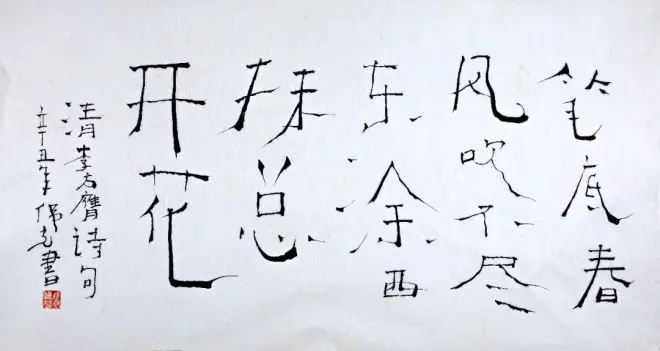 笔底春
风吹不尽
东涂西
抹总
开花
清李方膺詩句
辛丑年書